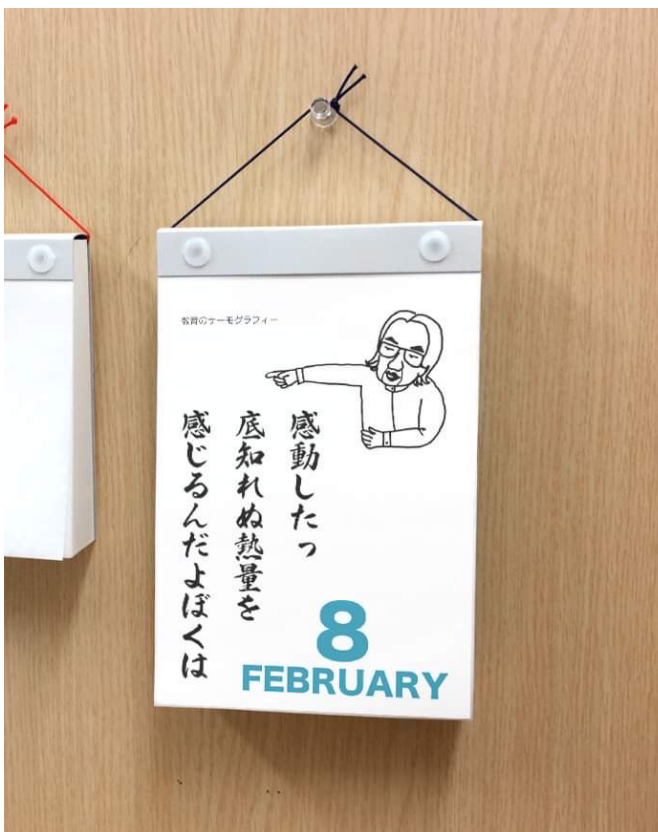 教育のサーモグラフィー
感動したっ
底知れぬ熱量を
感じるんだよぼくは
8
FEBRUARY